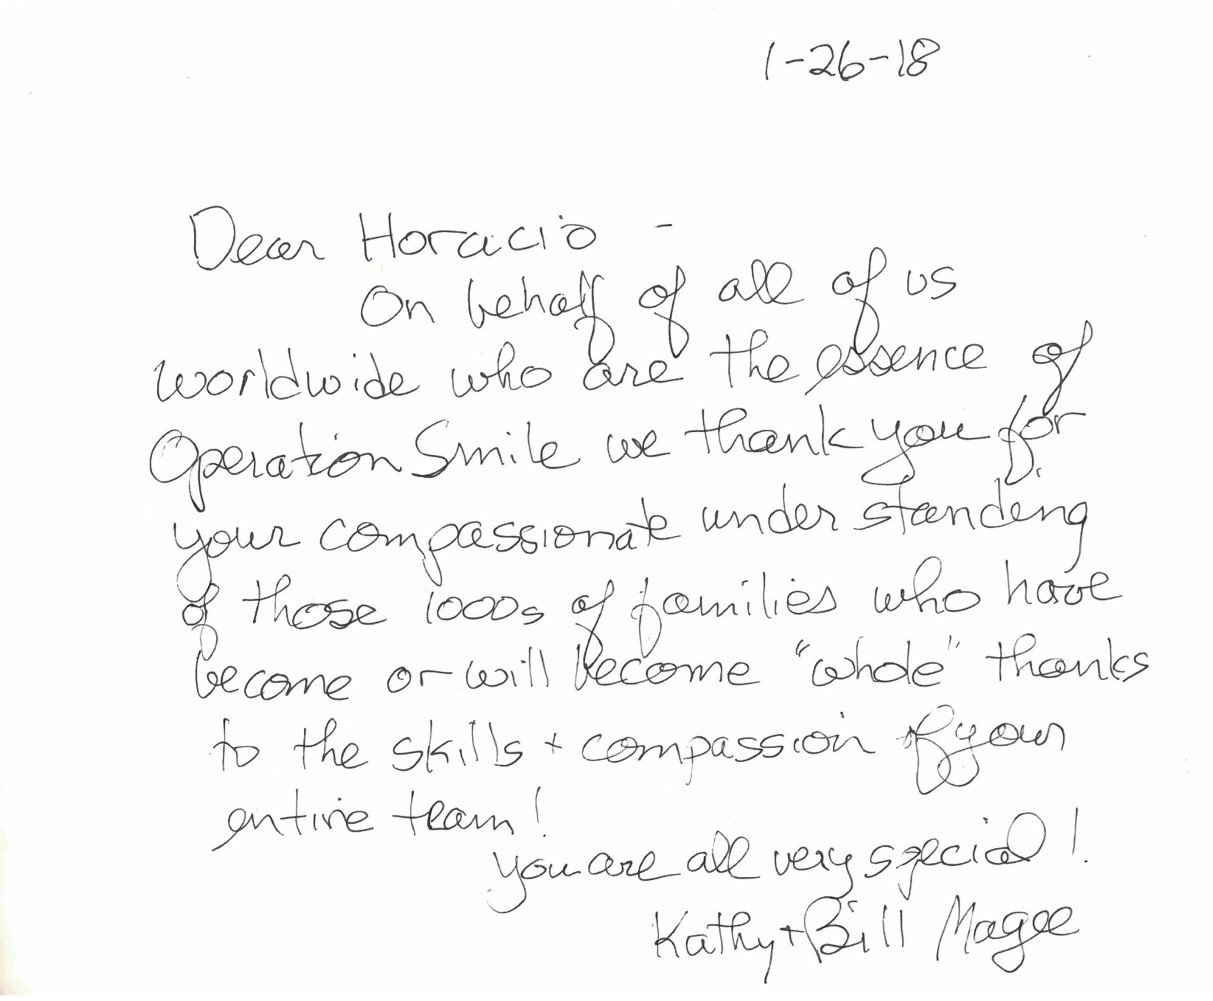 1-26-18
Dear Horacio -
On behalf of all of us
worldwide who are the essence of
Operation Smile we thank you for
your compassionate understanding
of those 1000s of families who have
become or will become "whole" thanks
to the skills + compassion of your
entire team!
you are all very special!
Kathy + Bill Magee